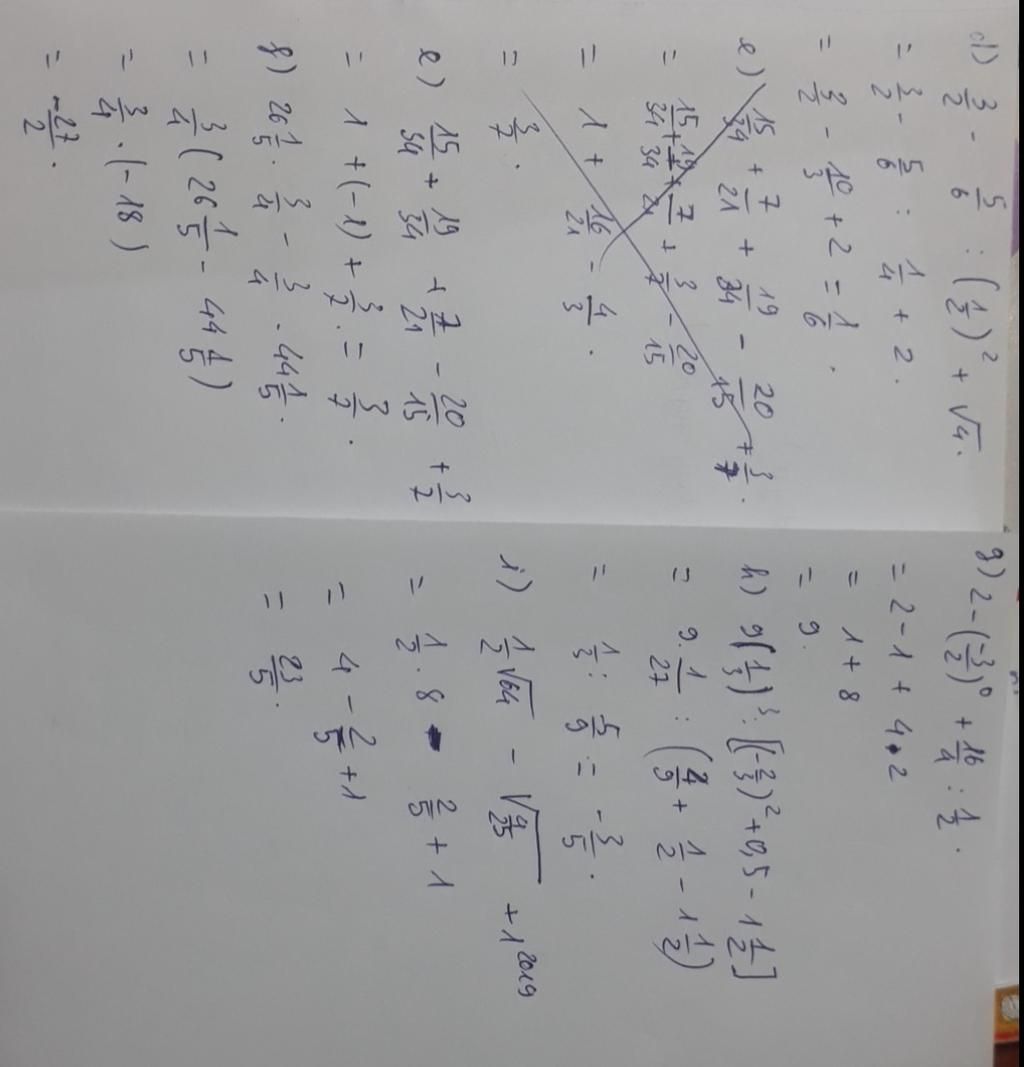 d) 3/2 - 5/6 : (1/2)² + √4.
= 3/2 - 5/6 : 1/4 + 2.
= 3/2 - 10/3 + 2 = 1/6.
e) 15/34 + 7/21 + 19/34 - 20/15 + 3/7.
= 15/34 + 19/34 + 7/21 + 3/7 - 20/15
= 1 + 16/21 - 4/3.
= 3/7.
e) 15/34 + 19/34 + 7/21 - 20/15 + 3/7
= 1 + (-1) + 3/7. = 3/7.
f) 26 1/5 . 3/4 - 3/4 . 44 1/5.
= 3/4 ( 26 1/5 - 44 1/5 )
= 3/4 . (-18)
= -27/2.
g) 2 - (-3/2)⁰ + 16/4 : 1/2.
= 2 - 1 + 4 . 2
= 1 + 8
= 9.
h) 9(1/3)³ : [(-2/3)² + 0,5 - 1 1/2]
= 9. 1/27 : (4/9 + 1/2 - 1 1/2)
= 1/3 : 5/9 = -3/5.
i) 1/2 √64 - √4/25 + 1²⁰¹⁹
= 1/2 . 8 - 2/5 + 1
= 4 - 2/5 + 1
= 23/5.